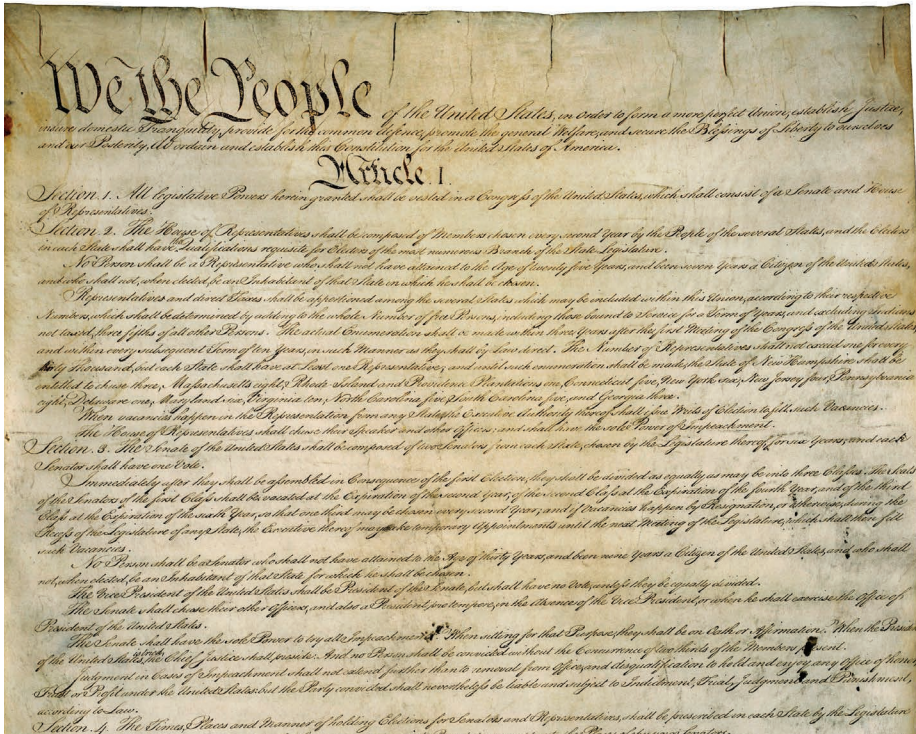 We the People of the United States, in Order to form a more perfect Union, establish Justice,
insure domestic Tranquility, provide for the common defence, promote the general Welfare, and secure the Blessings of Liberty to ourselves
and our Posterity, do ordain and establish this Constitution for the United States of America.
Article. I.
Section. 1. All legislative Powers herein granted shall be vested in a Congress of the United States, which shall consist of a Senate and House
of Representatives.
Section. 2. The House of Representatives shall be composed of Members chosen every second Year by the People of the several States, and the Electors
in each State shall have the Qualifications requisite for Electors of the most numerous Branch of the State Legislature.
No Person shall be a Representative who shall not have attained to the Age of twenty five Years, and been seven Years a Citizen of the United States,
and who shall not, when elected, be an Inhabitant of that State in which he shall be chosen.
Representatives and direct Taxes shall be apportioned among the several States which may be included within this Union, according to their respective
Numbers, which shall be determined by adding to the whole Number of free Persons, including those bound to Service for a Term of Years, and excluding Indians
not taxed, three fifths of all other Persons. The actual Enumeration shall be made within three Years after the first Meeting of the Congress of the United States,
and within every subsequent Term of ten Years, in such Manner as they shall by Law direct. The Number of Representatives shall not exceed one for every
thirty Thousand, but each State shall have at Least one Representative; and until such enumeration shall be made, the State of New Hampshire shall be
entitled to chuse three, Massachusetts eight, Rhode Island and Providence Plantations one, Connecticut five, New York six, New Jersey four, Pennsylvania
eight, Delaware one, Maryland six, Virginia ten, North Carolina five, South Carolina five, and Georgia three.
When vacancies happen in the Representation from any State, the Executive Authority thereof shall issue Writs of Election to fill such Vacancies.
The House of Representatives shall chuse their Speaker and other Officers; and shall have the sole Power of Impeachment.
Section. 3. The Senate of the United States shall be composed of two Senators from each State, chosen by the Legislature thereof, for six Years; and each
Senator shall have one Vote.
Immediately after they shall be assembled in Consequence of the first Election, they shall be divided as equally as may be into three Classes. The Seats
of the Senators of the first Class shall be vacated at the Expiration of the second Year, of the second Class at the Expiration of the fourth Year, and of the third
Class at the Expiration of the sixth Year, so that one third may be chosen every second Year; and if Vacancies happen by Resignation, or otherwise, during the
Recess of the Legislature of any State, the Executive thereof may make temporary Appointments until the next Meeting of the Legislature, which shall then fill
such Vacancies.
No Person shall be a Senator who shall not have attained to the Age of thirty Years, and been nine Years a Citizen of the United States, and who shall
not, when elected, be an Inhabitant of that State for which he shall be chosen.
The Vice President of the United States shall be President of the Senate, but shall have no Vote, unless they be equally divided.
The Senate shall chuse their other Officers, and also a President pro tempore, in the Absence of the Vice President, or when he shall exercise the Office of
President of the United States.
The Senate shall have the sole Power to try all Impeachments. When sitting for that Purpose, they shall be on Oath or Affirmation. When the President
of the United States is tried, the Chief Justice shall preside: And no Person shall be convicted without the Concurrence of two thirds of the Members present.
Judgment in Cases of Impeachment shall not extend further than to removal from Office, and disqualification to hold and enjoy any Office of honor,
Trust or Profit under the United States: but the Party convicted shall nevertheless be liable and subject to Indictment, Trial, Judgment and Punishment,
according to Law.
Section. 4. The Times, Places and Manner of holding Elections for Senators and Representatives, shall be prescribed in each State by the Legislature